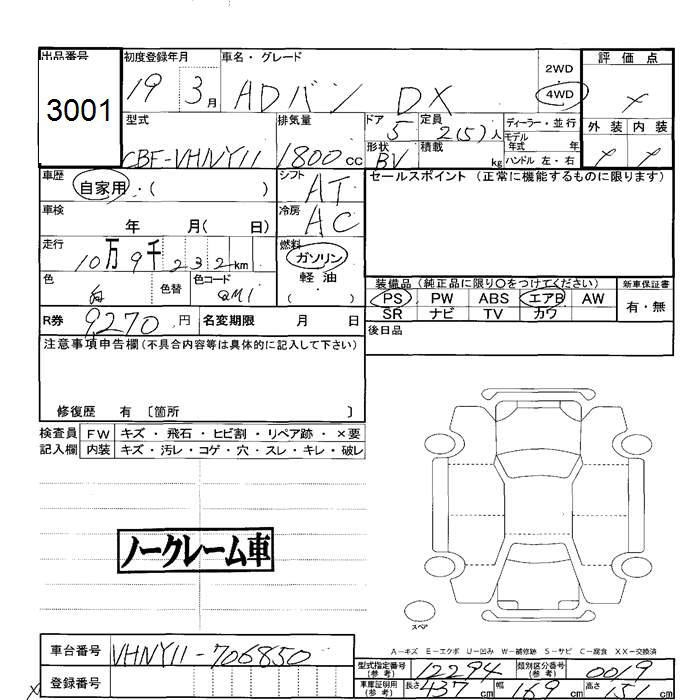 出品番号 初度登録年月 車名・グレード 2WD 評価点
3001 19 3月 ADバン DX 4WD
型式 排気量 ドア 定員 ディーラー・並行 外装 内装
CBF-VHNY11 1800cc 5 2(5)人 モデル年式 年
形状 BV 積載 kg ハンドル 左・右
車歴 自家用・( ) シフト AT セールスポイント (正常に機能するものに限ります)
車検 年 月( 日) 冷房 AC
走行 10万9千232km 燃料 ガソリン
軽油
( )
色 白 色替 色コード QM1
装備品 (純正品に限り○をつけてください) 新車保証書
PS PW ABS エアB AW 有・無
SR ナビ TV カワ
R券 9270円 名変期限 月 日
後日品
注意事項申告欄(不具合内容等は具体的に記入して下さい)
修復歴 有 〔箇所 〕
検査員 FW キズ・飛石・ヒビ割・リペア跡・×要
記入欄 内装 キズ・汚レ・コゲ・穴・スレ・キレ・破レ
ノークレーム車
スペア
A-キズ E-エクボ U-凹み W-補修跡 S-サビ C-腐食 XX-交換済
車台番号 VHNY11-706850
登録番号
型式指定番号(参考) 12294 類別区分番号(参考) 0019
車庫証明用(参考) 長さ 437cm 幅 169cm 高さ 151cm